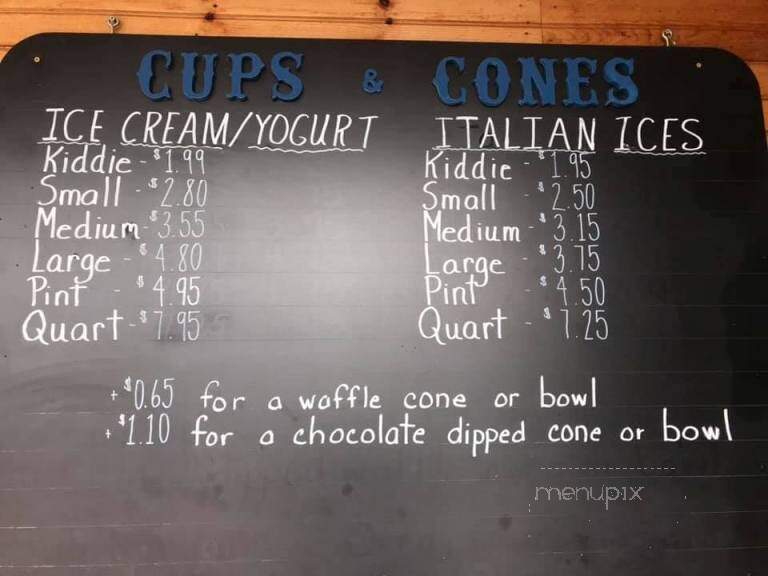 CUPS & CONES
ICE CREAM/YOGURT
Kiddie - $1.99
Small - $2.80
Medium - $3.55
Large - $4.80
Pint - $4.95
Quart - $7.95
ITALIAN ICES
Kiddie - $1.95
Small - $2.50
Medium - $3.15
Large - $3.75
Pint - $4.50
Quart - $7.25
+ $0.65 for a waffle cone or bowl
+ $1.10 for a chocolate dipped cone or bowl
menupix